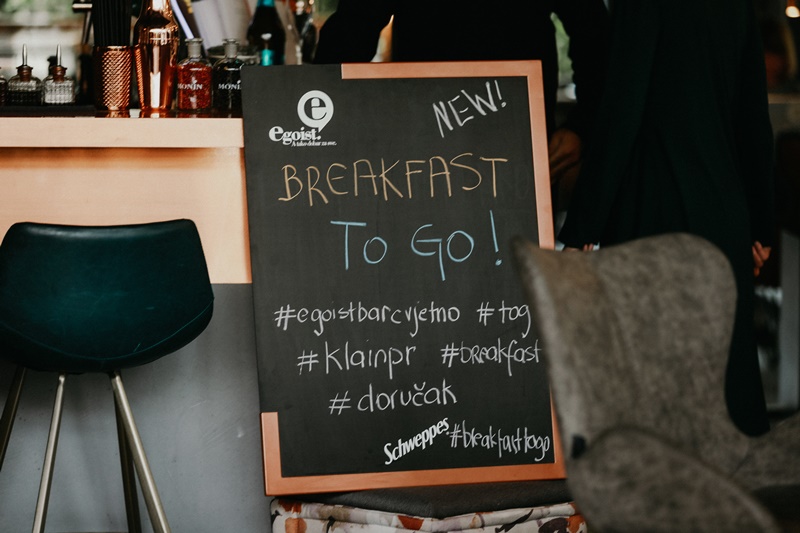 MONIN
MONIN
NEW!
e
egoist.
A tako dobar za sve.
BREAKFAST
TO GO!
#egoistbarcvjetno #tog
#klainpr #breakfast
#doručak
Schweppes #breakfasttogo